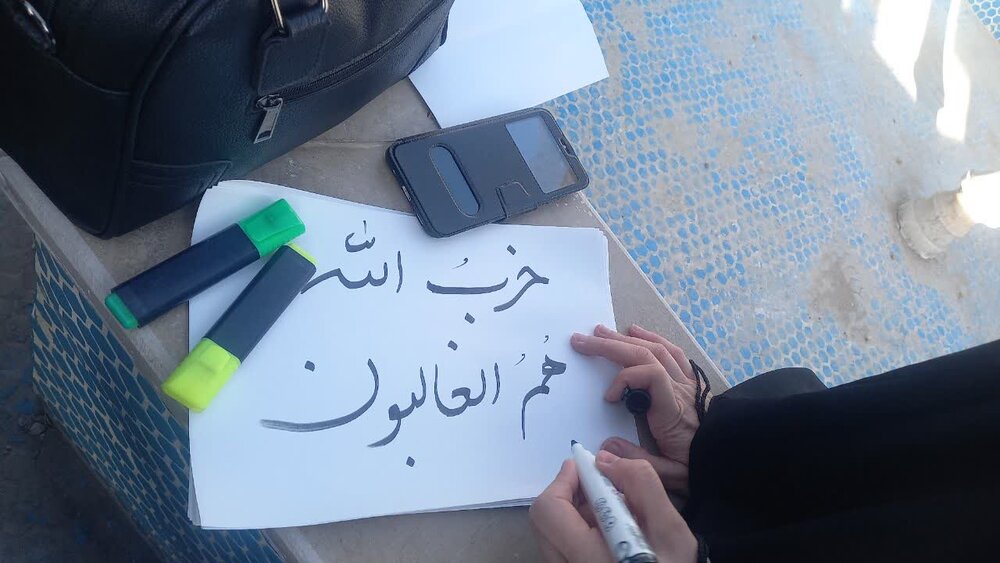 حزبُ الله
هُمُ الغالبون